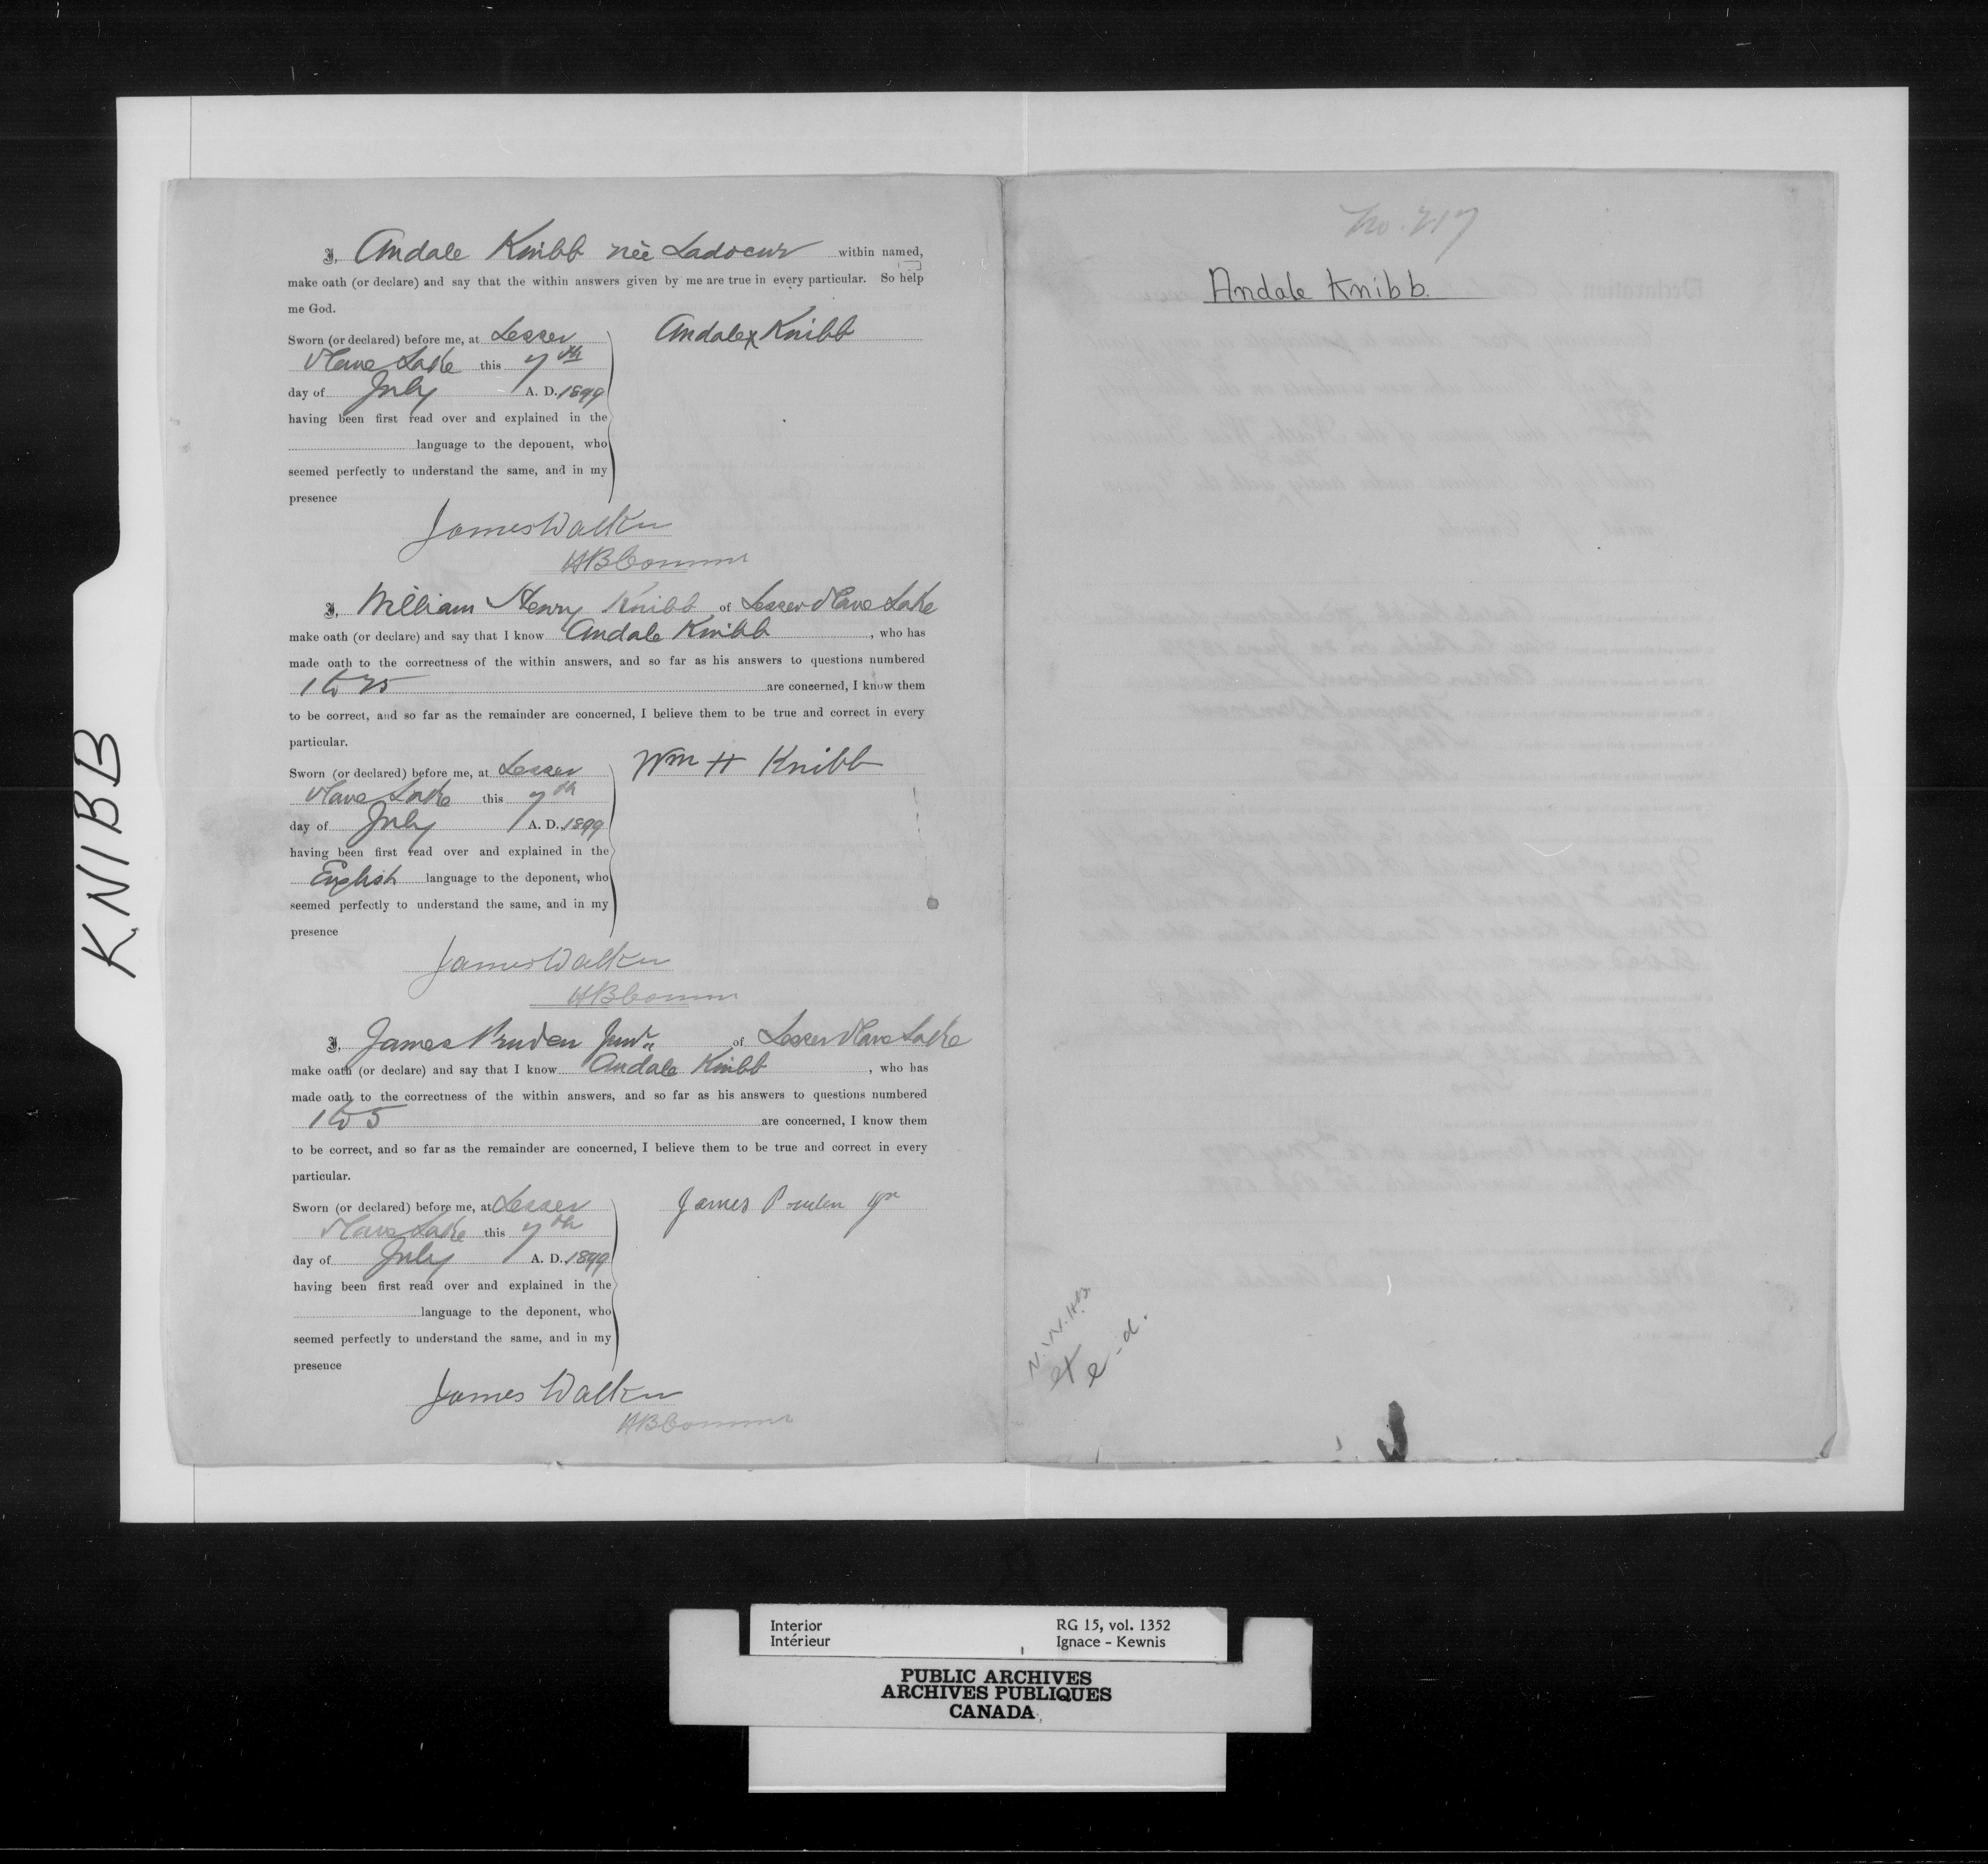 KNIBB
I, Andale Knibb nèe Ladocur within named,
make oath (or declare) and say that the within answers given by me are true in every particular. So help
me God.
Sworn (or declared) before me, at Lesser
Slave Lake this 7th
day of July A. D. 1899
having been first read over and explained in the
language to the deponent, who
seemed perfectly to understand the same, and in my
presence
Andale x Knibb
James Walker
HB Commr
I, William Henry Knibb of Lesser Slave Lake
make oath (or declare) and say that I know Andale Knibb, who has
made oath to the correctness of the within answers, and so far as his answers to questions numbered
1 to 25 are concerned, I know them
to be correct, and so far as the remainder are concerned, I believe them to be true and correct in every
particular.
Sworn (or declared) before me, at Lesser
Slave Lake this 7th
day of July A. D. 1899
having been first read over and explained in the
English language to the deponent, who
seemed perfectly to understand the same, and in my
presence
Wm H Knibb
James Walker
HB Commr
I, James Pruden Junr of Lesser Slave Lake
make oath (or declare) and say that I know Andale Knibb, who has
made oath to the correctness of the within answers, and so far as his answers to questions numbered
1 to 5 are concerned, I know them
to be correct, and so far as the remainder are concerned, I believe them to be true and correct in every
particular.
Sworn (or declared) before me, at Lesser
Slave Lake this 7th
day of July A. D. 1899
having been first read over and explained in the
language to the deponent, who
seemed perfectly to understand the same, and in my
presence
James Pruden Jr
James Walker
HB Commr
No. 217
Andale Knibb.
Interior
Intérieur
RG 15, vol. 1352
Ignace - Kewnis
PUBLIC ARCHIVES
ARCHIVES PUBLIQUES
CANADA